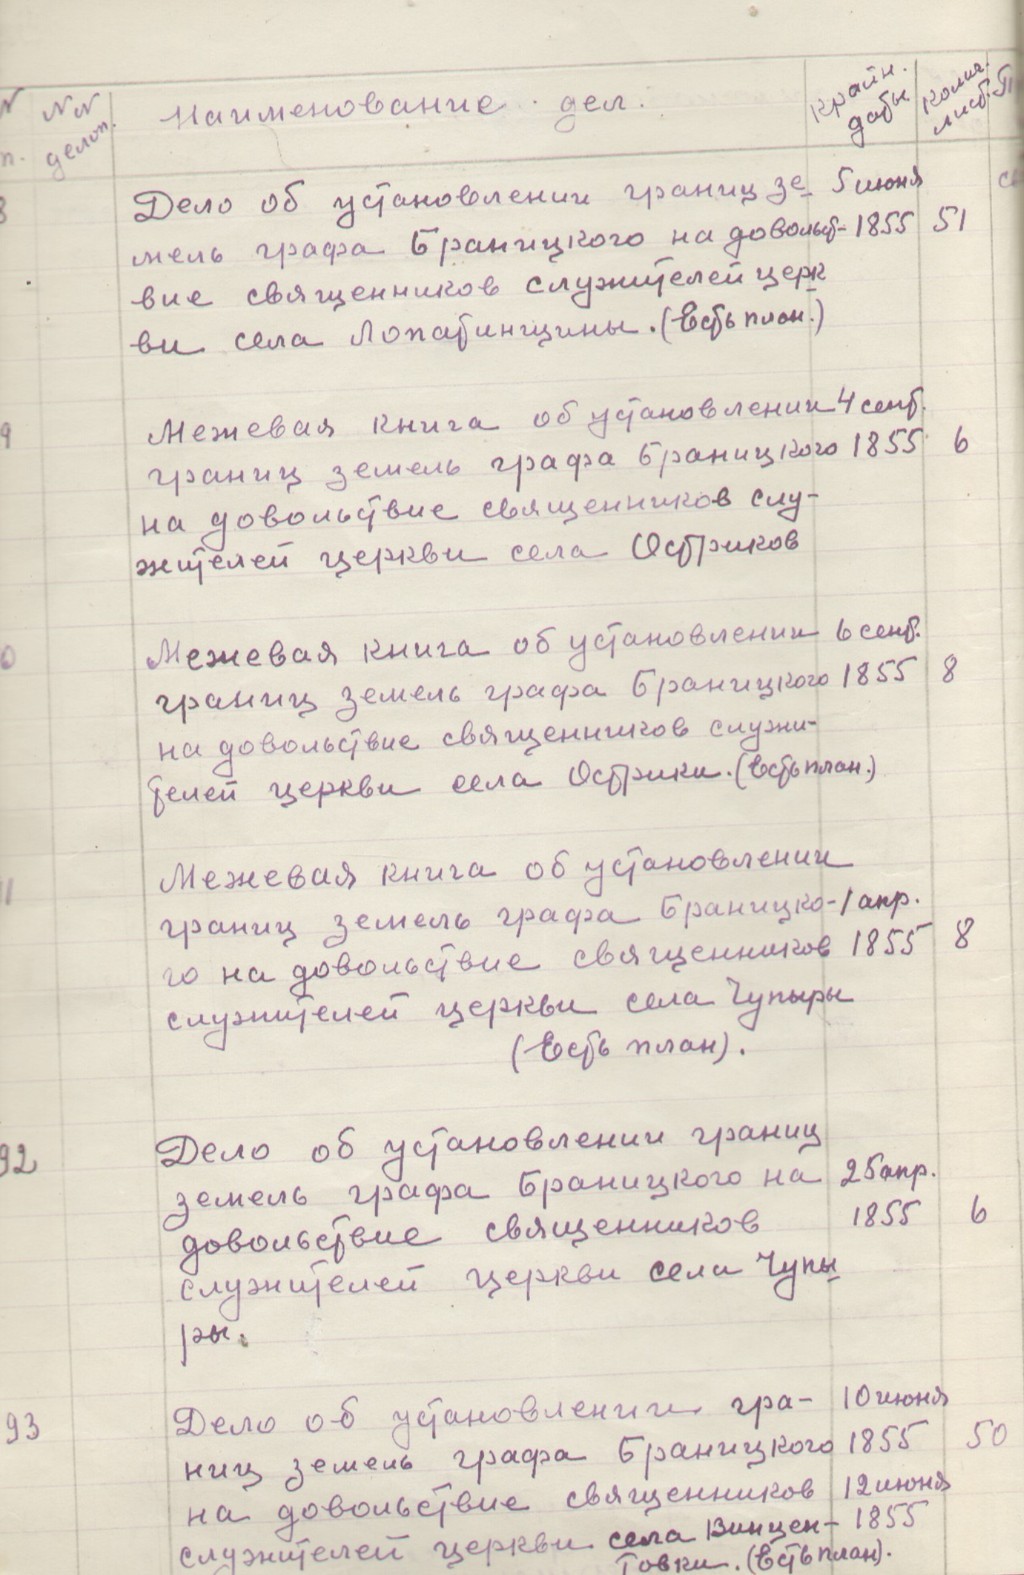 N NN Наименование дел. Крайн. Колич.
п. делоп. даты лист.
Дело об установлении границ зе- 5 июня
мель графа Браницкого на довольст- 1855 51
вие священников служителей церк
ви села Лопатинщины. (Есть план.)
9 Межевая книга об установлении 4 сент.
границ земель графа Браницкого 1855 6
на довольствие священников слу-
жителей церкви села Остриков
0 Межевая книга об установлении 6 сент.
границ земель графа Браницкого 1855 8
на довольствие священников служи-
телей церкви села Острики. (Есть план.)
1 Межевая книга об установлении
границ земель графа Браницко- 1 апр.
го на довольствие священников 1855 8
служителей церкви села Чупыры
(Есть план).
92 Дело об установлении границ
земель графа Браницкого на 25 апр.
довольствие священников 1855 6
служителей церкви села Чупы
ры.
93 Дело об установлении гра- 10 июня
ниц земель графа Браницкого 1855 50
на довольствие священников 12 июня
служителей церкви села Винцен- 1855
товки. (Есть план).